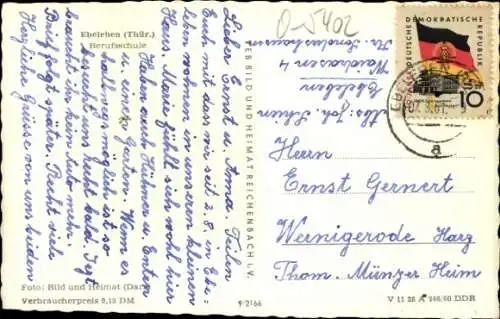 Ebeleben (Thür.)
Berufsschule
Lieber Ernst u. Anna. Teilen
Euch mit dass wir seit 2.8. in Ebe-
leben wohnen in unseren kleinen
Haus. Mama fühlt sich wohl hier
Haben auch Hühner u. Enten
u. einen Garten. Wenn es
möglich ist so
besucht uns bald. Jetzt
braucht ihr kein Auto mehr.
Brief folgt später. Recht viele
Herzliche Grüsse von uns beiden
Foto: Bild und Heimat
Verbraucherpreis 0,15 DM
VEB BILD UND HEIMAT REICHENBACH I. V.
9/2166
Abs. Joh.
Ebeleben
4
Kr. Sondershausen
0-5402
DEUTSCHE DEMOKRATISCHE REPUBLIK
10
a
Herrn
Ernst Gernert
Wernigerode Harz
Thom. Münzer Heim
V 11 28 A 946/60 DDR